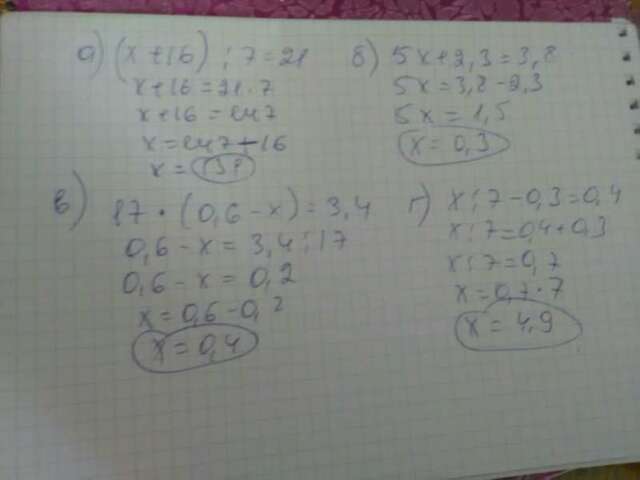 а) (x+16) : 7 = 21
x+16 = 21 · 7
x+16 = 147
x = 147 - 16
x = 131
б) 5x + 2,3 = 3,8
5x = 3,8 - 2,3
5x = 1,5
x = 0,3
в) 17 · (0,6 - x) = 3,4
0,6 - x = 3,4 : 17
0,6 - x = 0,2
x = 0,6 - 0,2
x = 0,4
г) x : 7 - 0,3 = 0,4
x : 7 = 0,4 + 0,3
x : 7 = 0,7
x = 0,7 · 7
x = 4,9